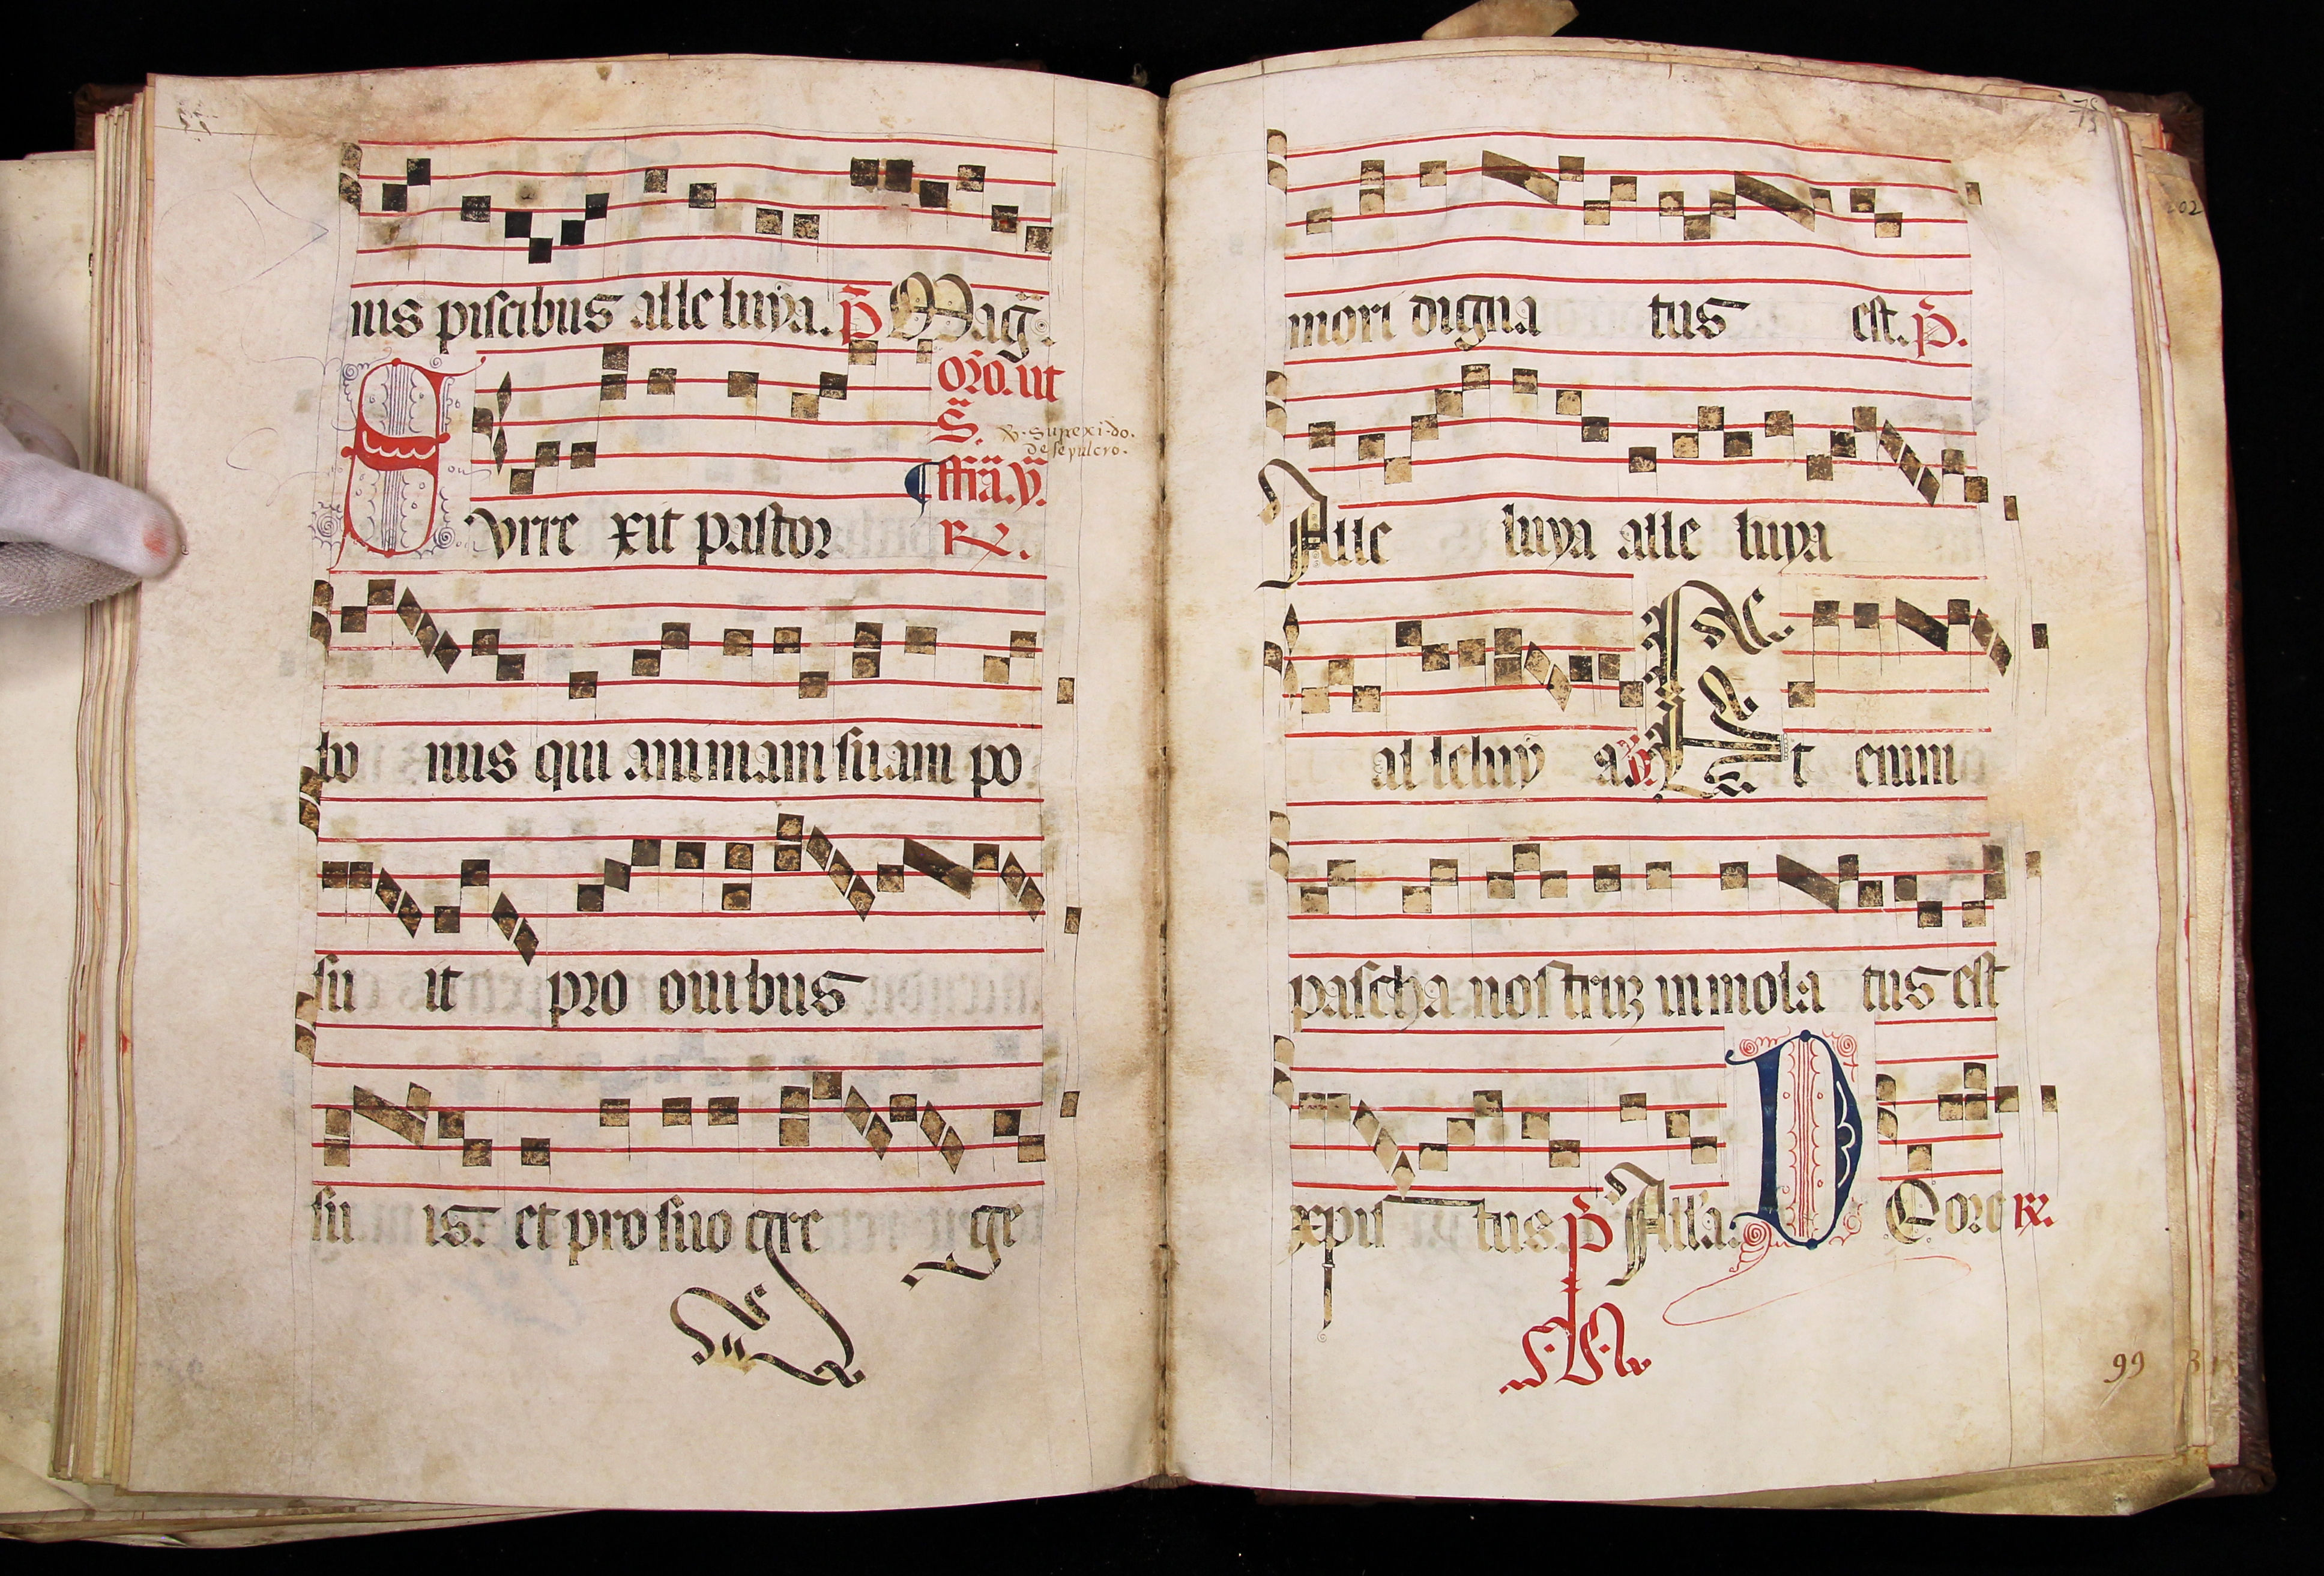 nis piscibus alleluya. p̃ Mag̃.
oro. ut
S.
℣. surrexi. do.
de sepulcro.
fr̃ia. ỹ.
Surre xit pastor ꝶ.
bo nus qui animam suam po
su it pro ouibus
su is. et pro suo gre ge
75
202
mori digna tus est. p̃.
Alle luya alle luya
al leluy a. ℣. Et enim
pascha nostruz inmola tus est
xpis tus. p̃ All'a. D E ore ꝶ.
99